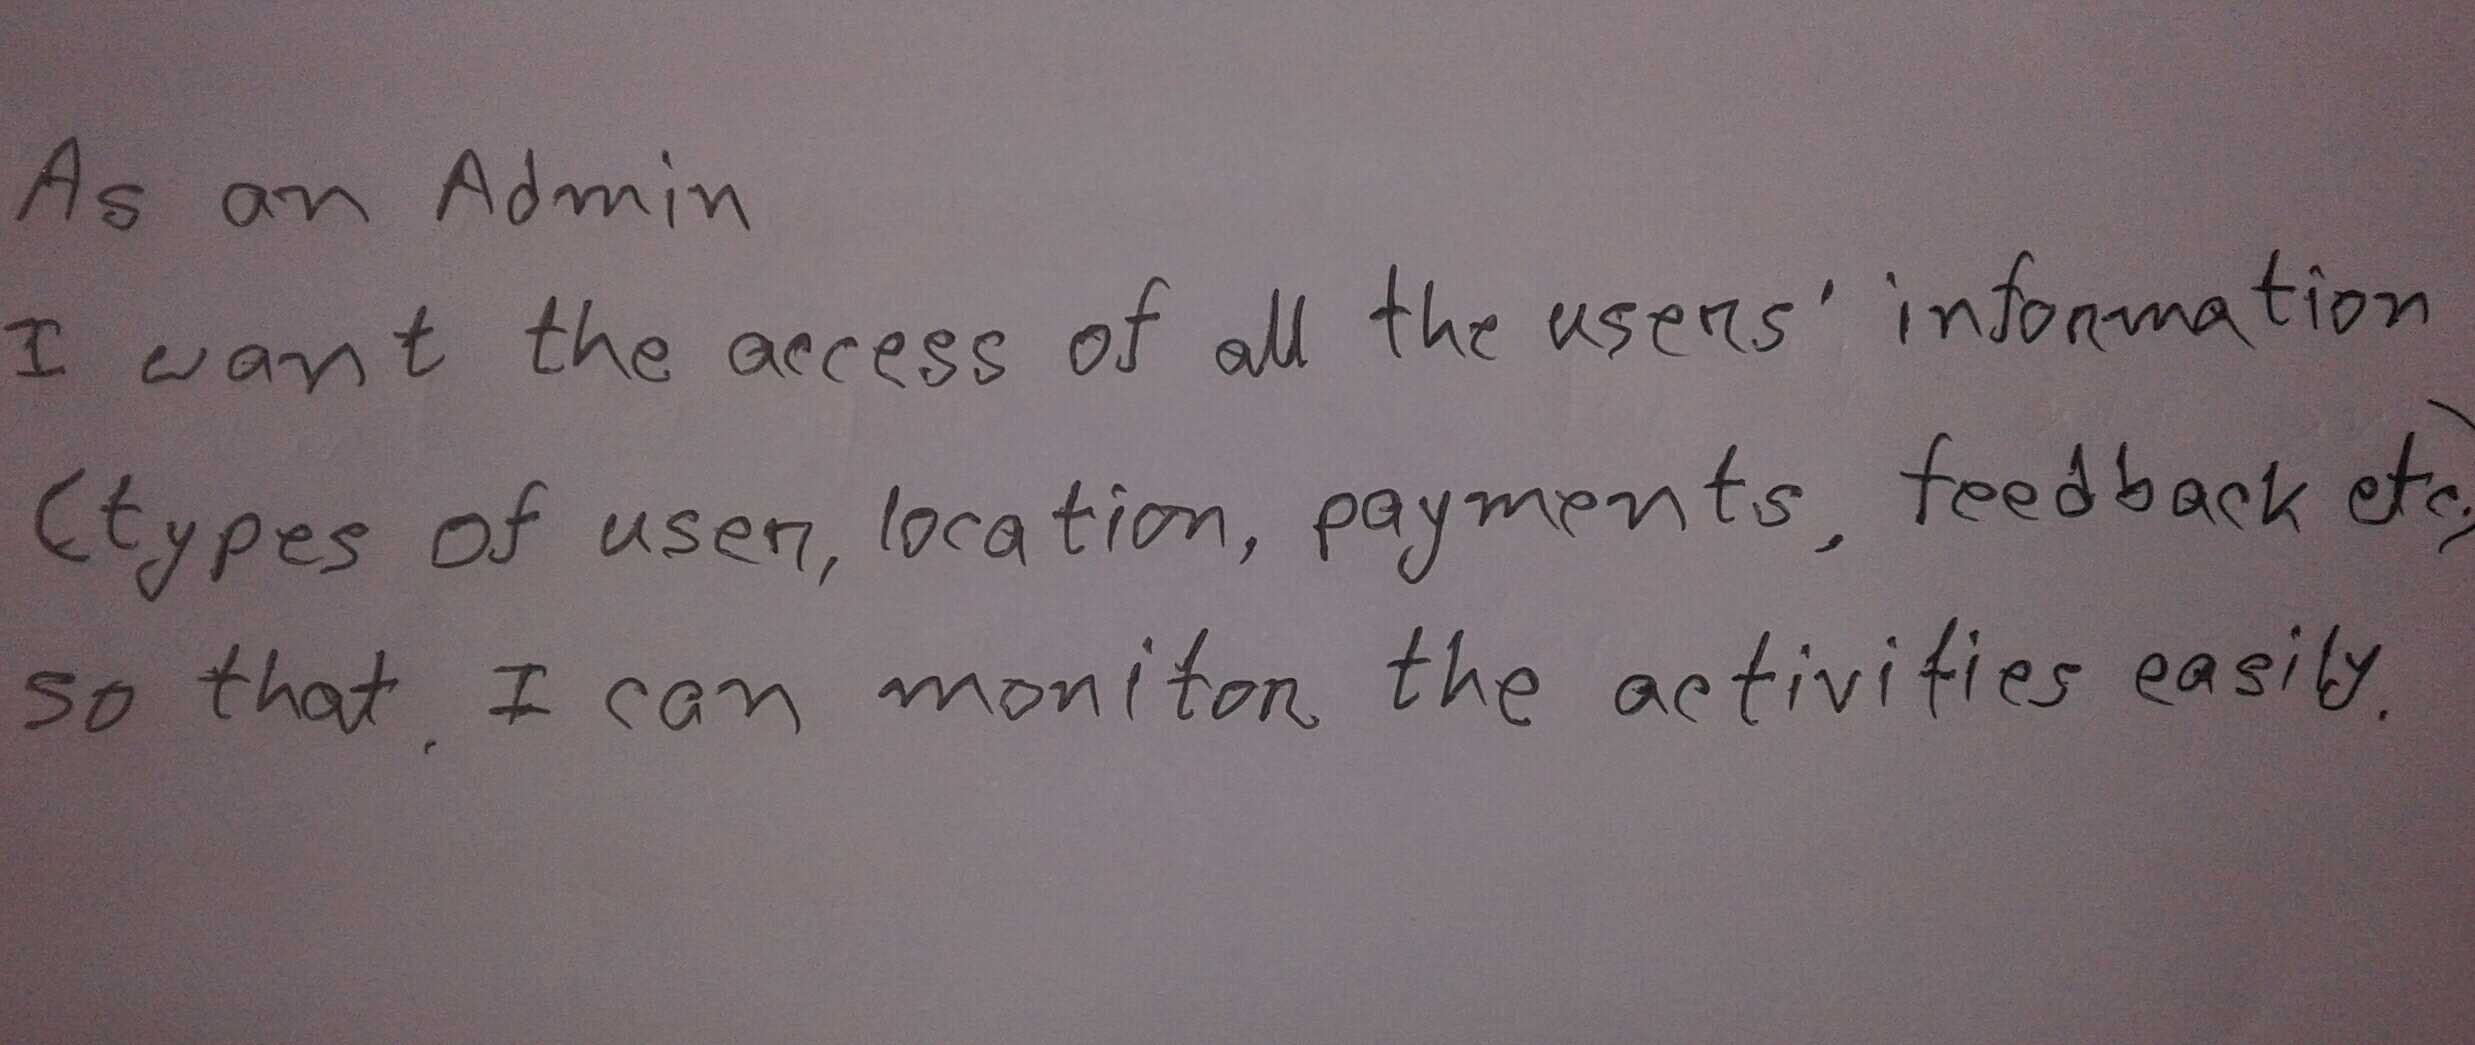 As an Admin
I want the access of all the users' information
(types of user, location, payments, feedback etc.)
so that, I can monitor the activities easily.